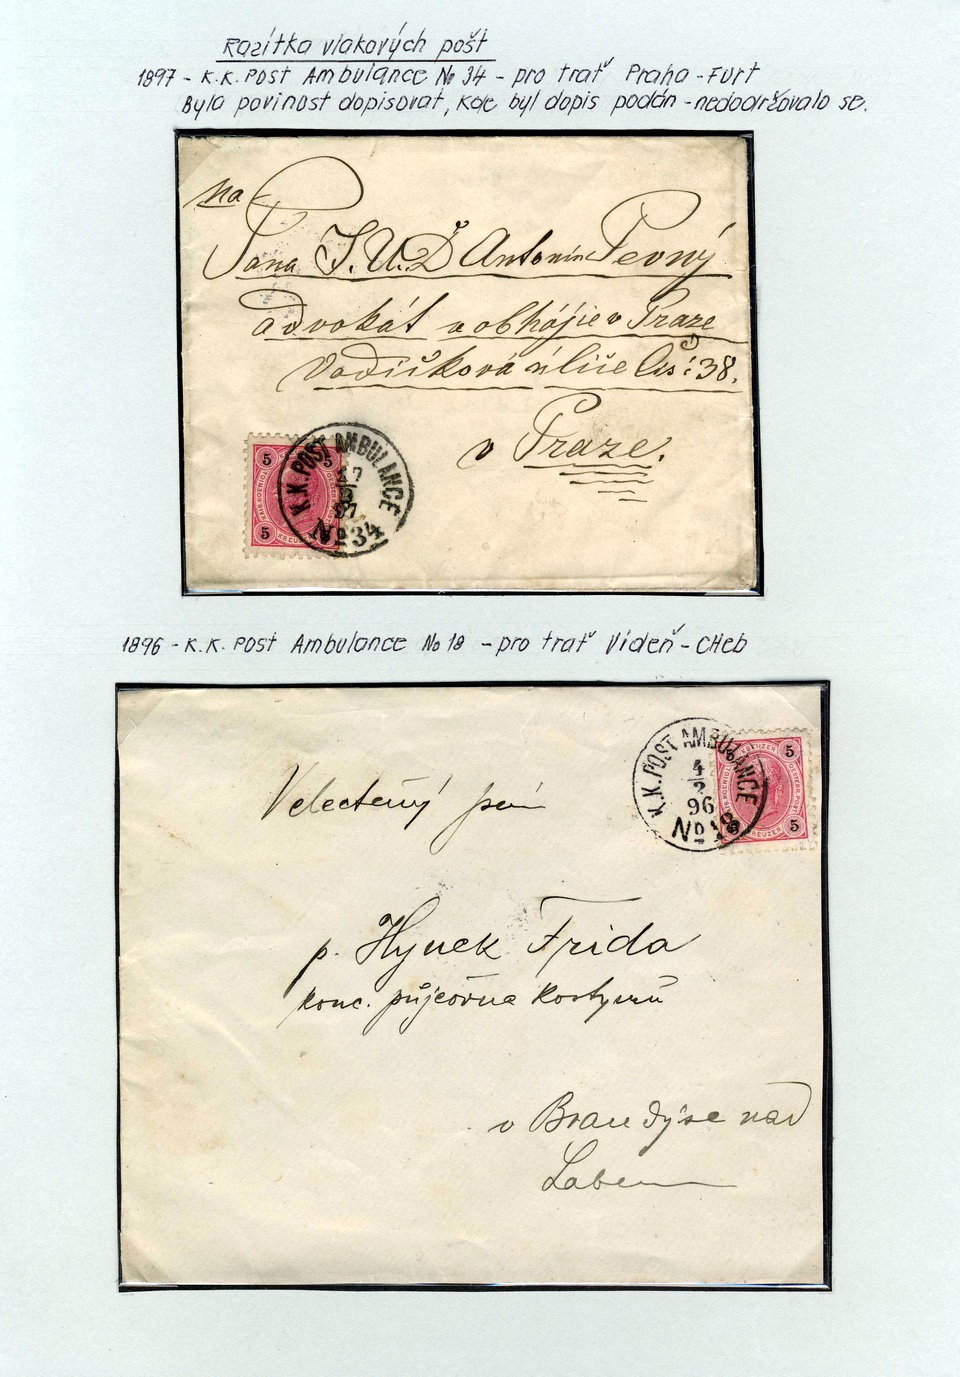 Razítka vlakových pošt
1897 - K.K. Post Ambulance No 34 - pro trať Praha - Furt
Byla povinost dopisovat, kde byl dopis podán - nedodržovalo se.
na
Pana J.U.D Antonín Pevný
advokát a obhájce v Praze
Vodičková ulice Čís: 38.
v Praze.
K.K. POST AMBULANCE
97
No 34
5 5
5
1896 - K.K. Post Ambulance No 18 - pro trať Vídeň - Cheb
K.K. POST AMBULANCE
4
2
96
No 18
5
5
KREUZER
Velectěný pán
p. Hynek Frida
konc. půjčovna kostymů
v Brandýse nad
Labem